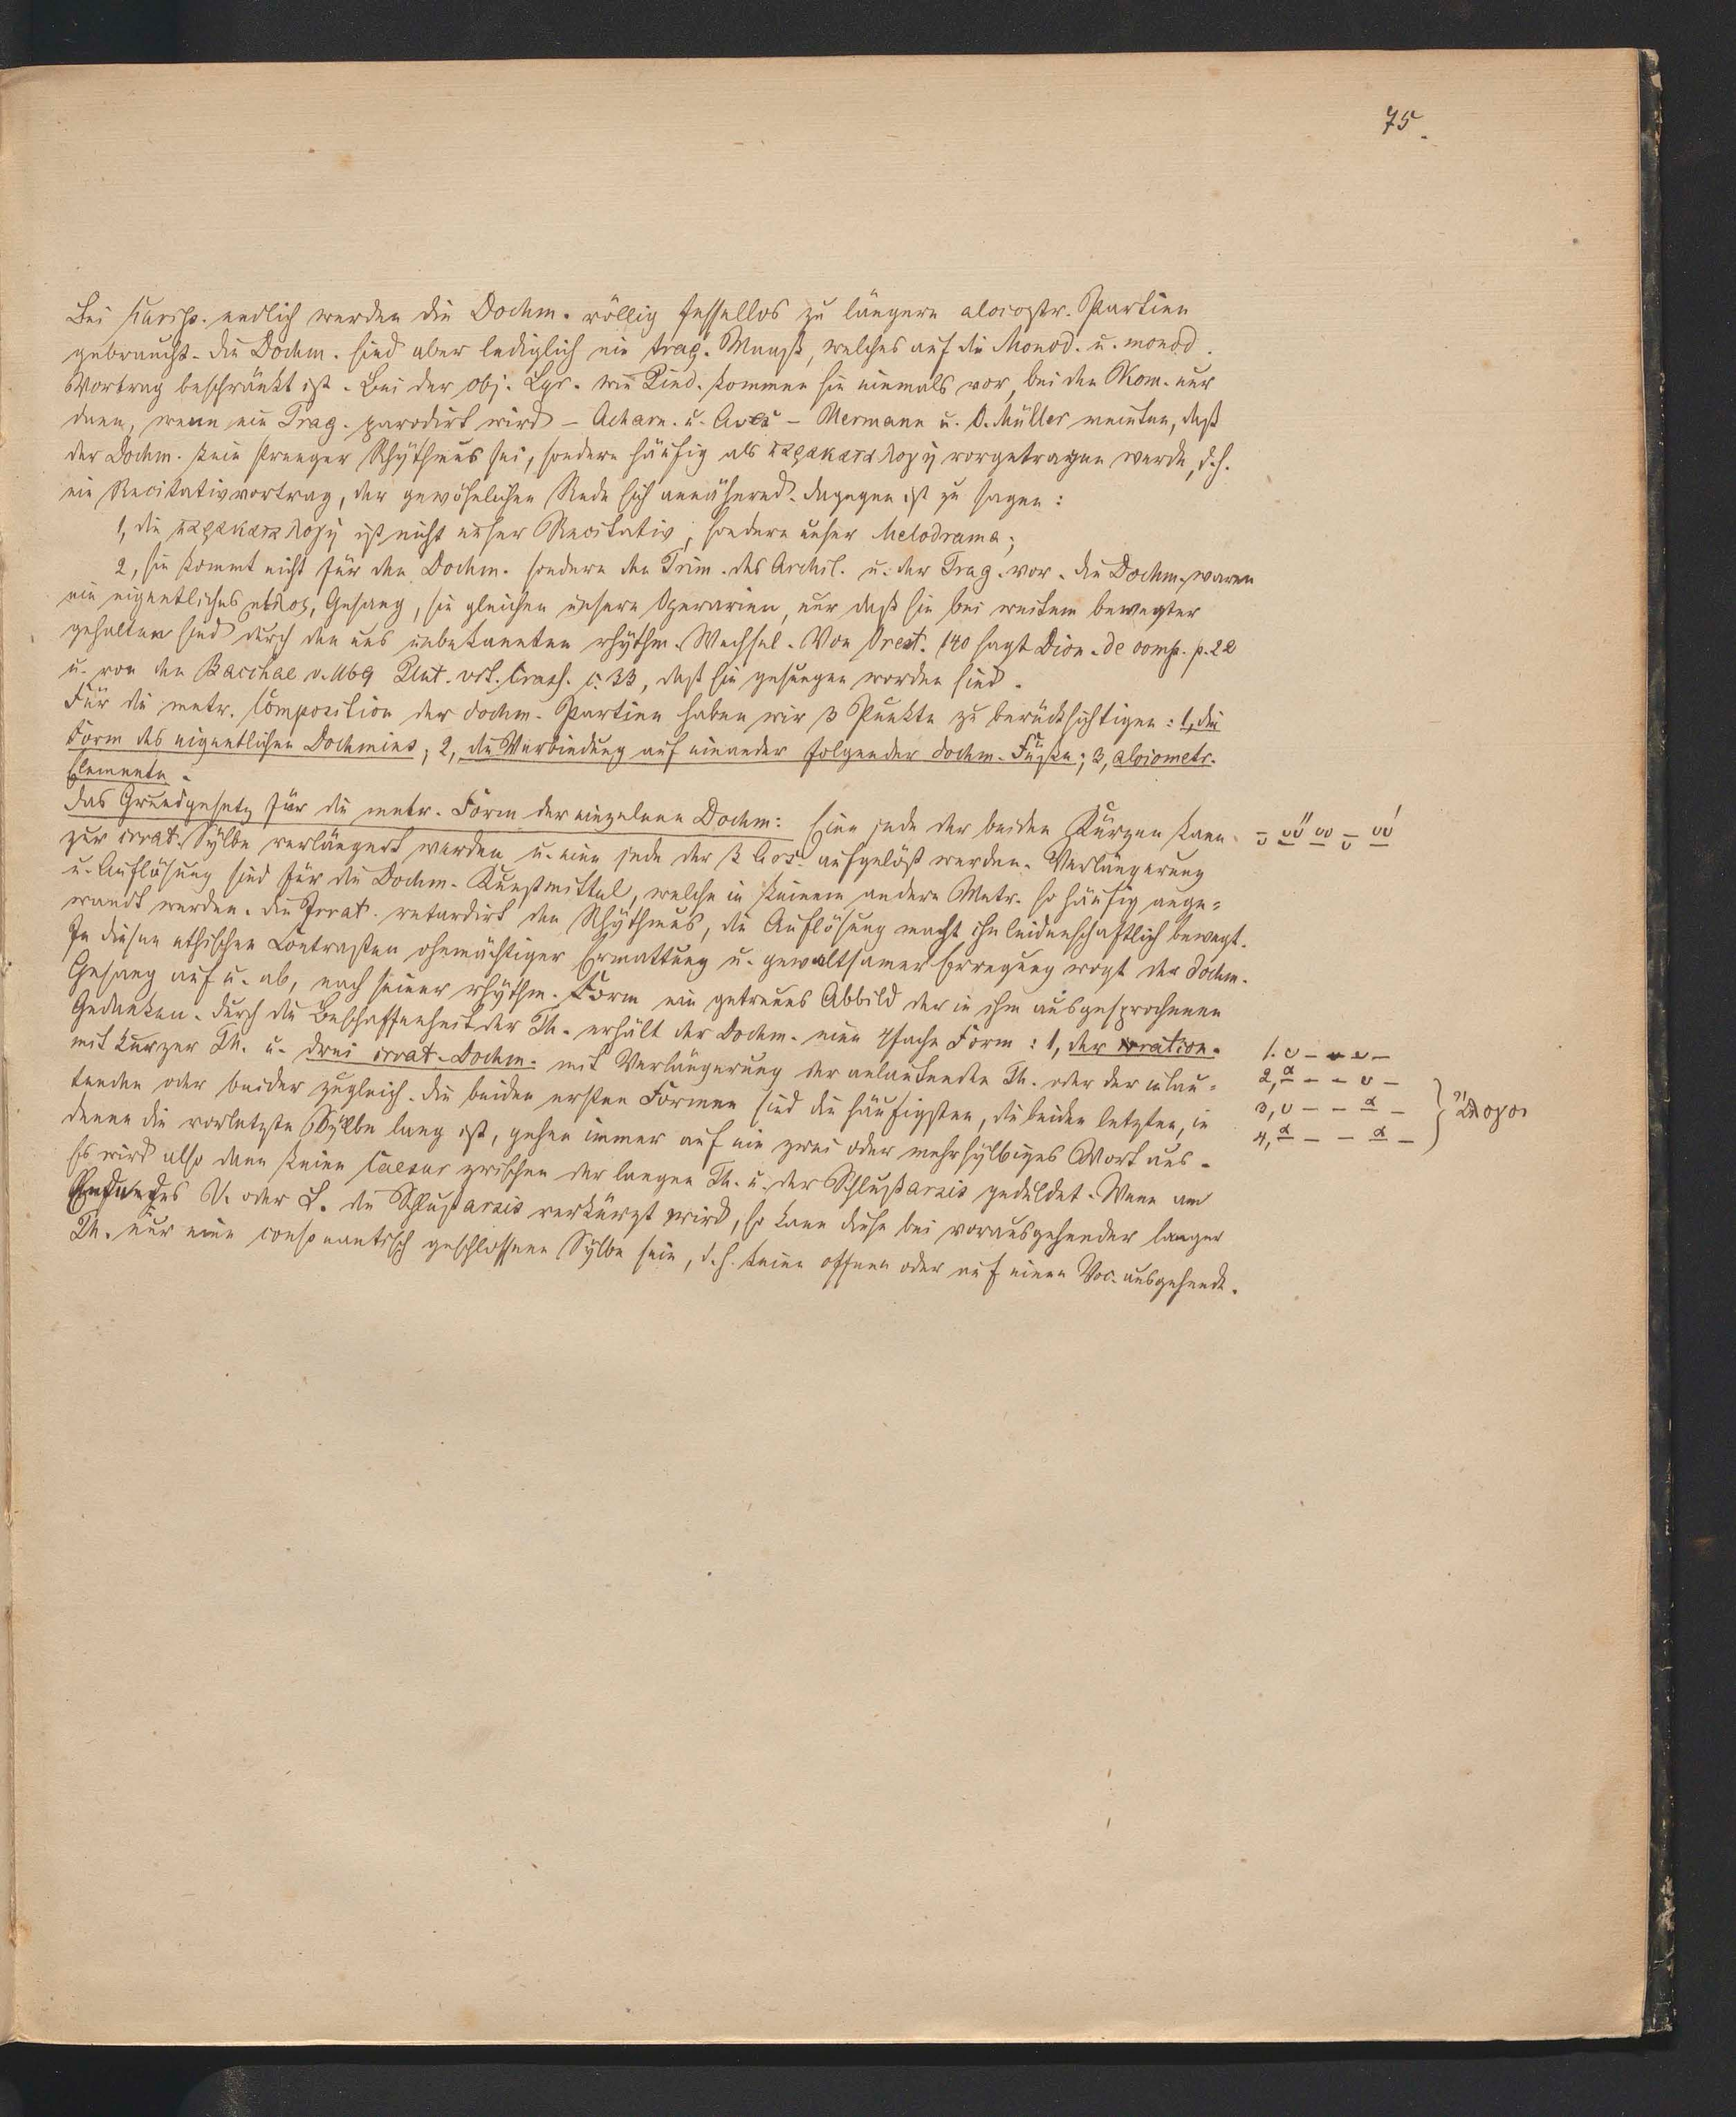 75.
Bei Eurip. endlich werden die Dochm. völlig fessellos zu längern aloiostr. Partien
gebraucht. Die Dochm. sind aber lediglich ein trag. Maaß, welches auf die Monod. u. monod.
Vortrag beschränkt ist. Bei der obj. Lyr. wie Pind. kommen sie niemals vor, bei den Kom. nur
dann, wenn ein Trag. parodirt wird – Acharn. u. Aves – Hermann u. O. Müller meinten, daß
der Dochm. kein strenger Rhythmus sei, sondern häufig als παρακαταλογή vorgetragen werde, d.h.
ein Recitativvortrag, der gewöhnlichen Rede sich annähernd. Dagegen ist zu sagen:
1, die παρακαταλογή ist nicht unser Recitativ, sondern unser Melodrama;
2, sie kommt nicht für den Dochm. sondern den Trim. des Archil. u. der Trag. vor. Die Dochm. waren
ein eigentliches μέλος, Gesang, sie gleichen unsern Operarien, nur daß sie bei weitem bewegter
gehalten sind durch den uns unbekannten rhythm. Wechsel. Von Orest. 140 sagt Dion. de comp. p. 22
u. von den Bacchae v. 1169 Plut. vit. Crass. c. 33, daß sie gesungen worden sind.
Für die metr. Composition der dochm. Partien haben wir 3 Punkte zu berücksichtigen: 1, die
Form des eigentlichen Dochmius; 2, die Verbindung auf einander folgender dochm. Füße; 3, aloiometr.
Elemente.
Das Grundgesetz für die metr. Form der einzelnen Dochm: Eine jede der beiden Kürzen kann
zur irrat. Sylbe verlängert werden u. eine jede der 3 Ars. aufgelöst werden. Verlängerung
u. Auflösung sind für die Dochm. Kunstmittel, welche in keinem andern Metr. so häufig ange=
wandt werden. Die Irrat. retardirt den Rhythmus, die Auflösung macht ihn leidenschaftlich bewegt.
In diesen ethischen Contrasten ohnmächtiger Ermattung u. gewaltsamer Erregung wogt der dochm.
Gesang auf u. ab, nach seiner rhythm. Form ein getreues Abbild der in ihm ausgesprochenen
Gedanken. Durch die Beschaffenheit der Th. erhält der Dochm. eine 4fache Form: 1, der ration.
mit kurzer Th. u. drei irrat. Dochm. mit Verlängerung der anlautenden Th. oder der inlau=
tenden oder beider zugleich. Die beiden ersten Formen sind die häufigsten, die beiden letzten, in
denen die vorletzte Sylbe lang ist, gehen immer auf ein zwei oder mehrsylbiges Wort aus.
Es wird also dann keine Caesur zwischen der langen Th. u. der Schlußarsis geduldet. Wenn am
Ende des V. oder S. die Schlußarsis verkürzt wird, so kann diese bei vorausgehender langer
Th. nur eine consonantisch geschlossene Sylbe sein, d.h. keine offene oder auf einen Voc. ausgehende.
1. ᴗ – – ᴗ –
2, α – – ᴗ –
3, ᴗ – – α –
4, α – – α –
} ἄλογοι